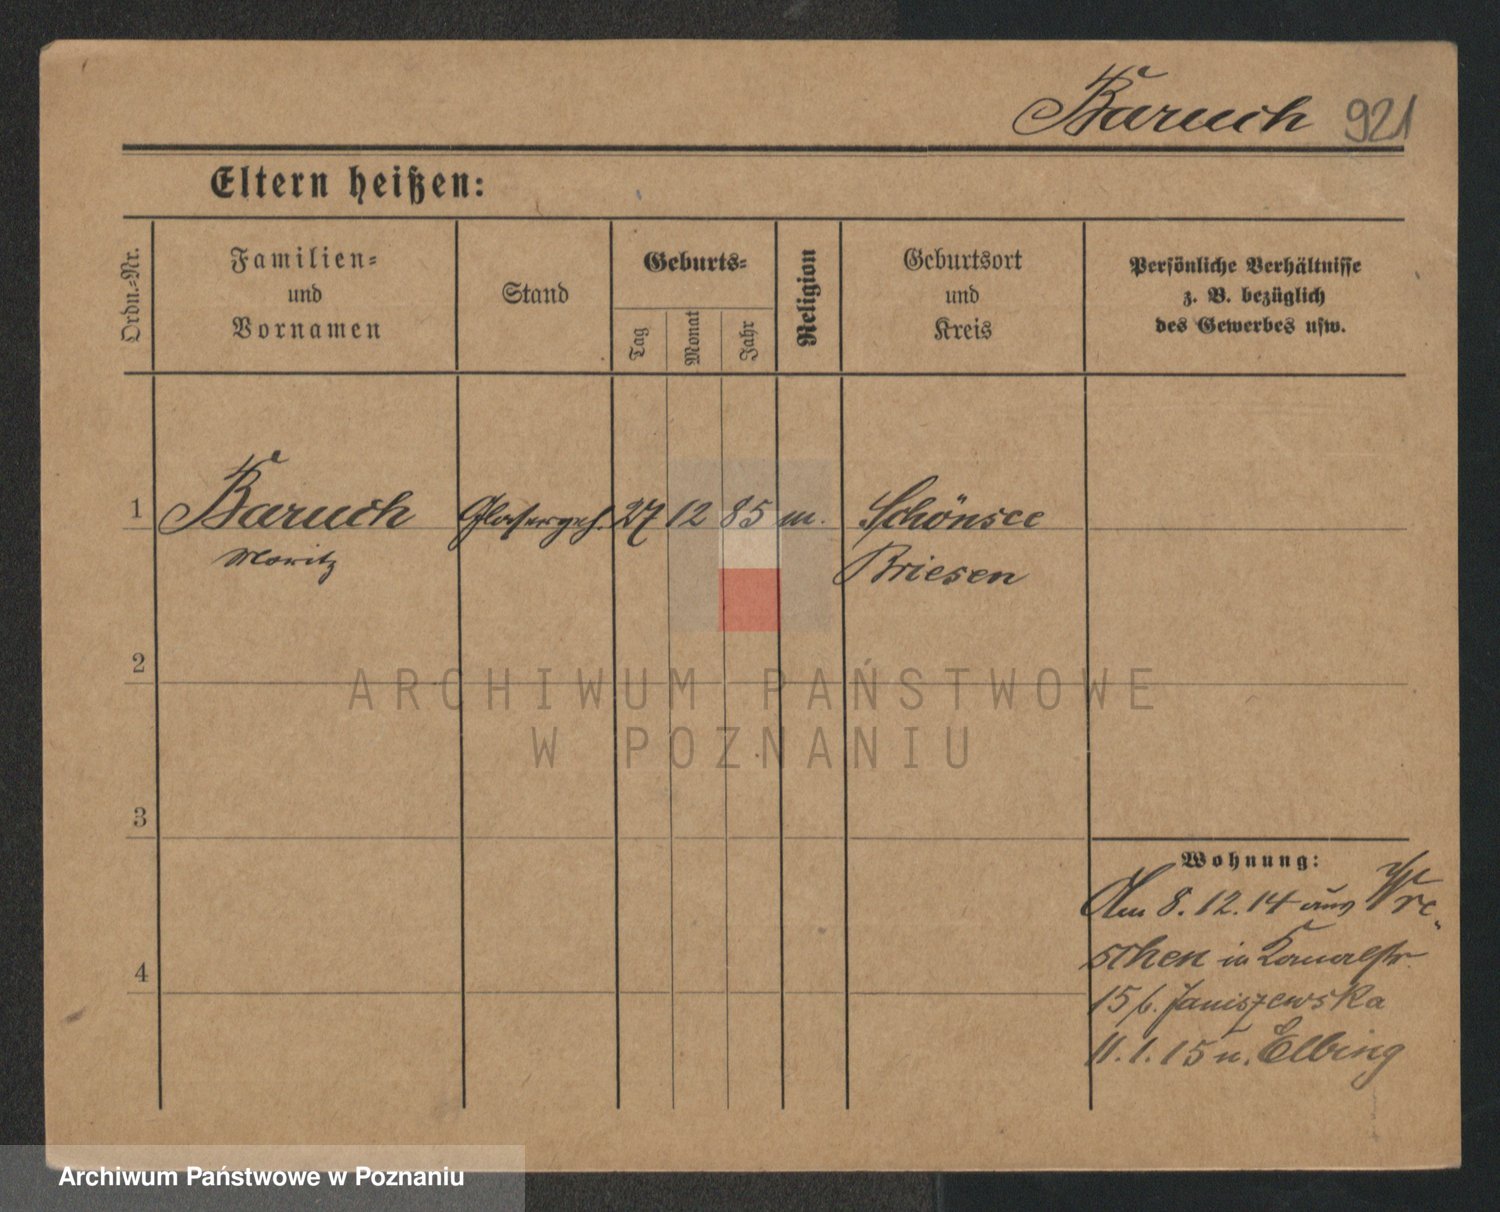 Baruch 921
Eltern heißen:
Ordn.-Nr.
Familien-
und
Vornamen
Stand
Geburts-
Tag
Monat
Jahr
Religion
Geburtsort
und
Kreis
Persönliche Verhältnisse
z. B. bezüglich
des Gewerbes usw.
1 Baruch Glasergeh. 27 12 85 m. Schönsee
Moritz Briesen
2
3
4
Wohnung:
Am 8.12.14 aus Wre-
schen in Kanalstr.
15 b. Janiszewska
11.1.15 n. Elbing
ARCHIWUM PAŃSTWOWE
W POZNANIU
Archiwum Państwowe w Poznaniu